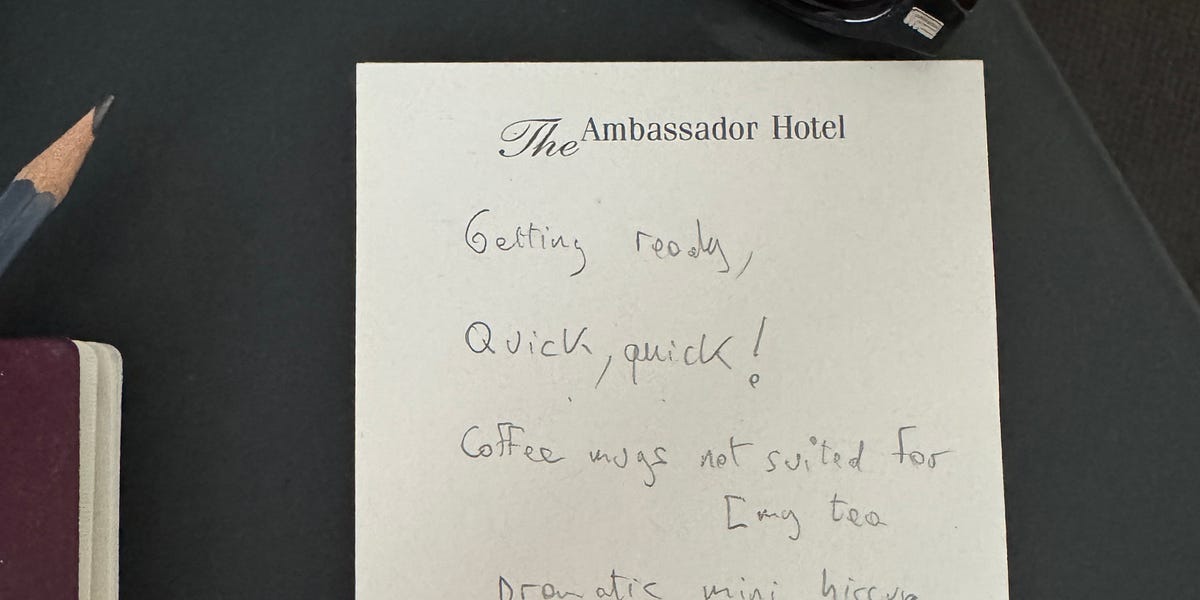 The Ambassador Hotel
Getting ready,
Quick, quick!
Coffee mugs not suited for
[my tea
Dramatic mini hiccup